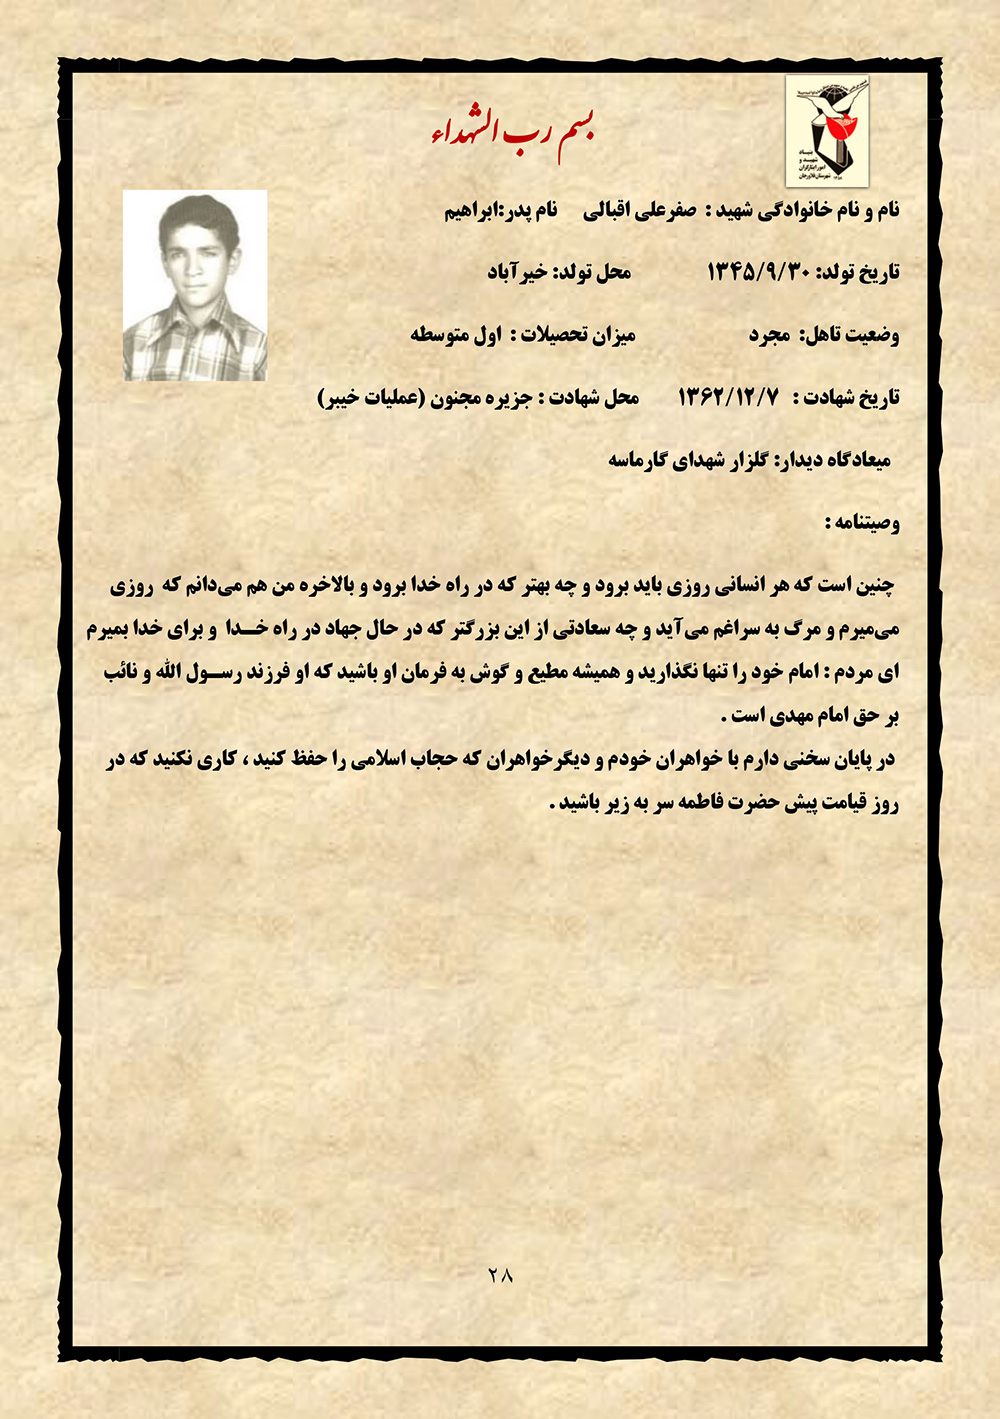 بسم رب الشهداء
بنیاد
شهید و
امور ایثارگران
شهرستان فلاورجان
نام و نام خانوادگی شهید : صفرعلی اقبالی نام پدر:ابراهیم
تاریخ تولد: ۱۳۴۵/۹/۳۰ محل تولد: خیرآباد
وضعیت تاهل: مجرد میزان تحصیلات : اول متوسطه
تاریخ شهادت : ۱۳۶۲/۱۲/۷ محل شهادت : جزیره مجنون (عملیات خیبر)
میعادگاه دیدار: گلزار شهدای گارماسه
وصیتنامه :
چنین است که هر انسانی روزی باید برود و چه بهتر که در راه خدا برود و بالاخره من هم می‌دانم که روزی
می‌میرم و مرگ به سراغم می‌آید و چه سعادتی از این بزرگتر که در حال جهاد در راه خــدا و برای خدا بمیرم
ای مردم : امام خود را تنها نگذارید و همیشه مطیع و گوش به فرمان او باشید که او فرزند رســول الله و نائب
بر حق امام مهدی است .
در پایان سخنی دارم با خواهران خودم و دیگرخواهران که حجاب اسلامی را حفظ کنید ، کاری نکنید که در
روز قیامت پیش حضرت فاطمه سر به زیر باشید .
۲۸